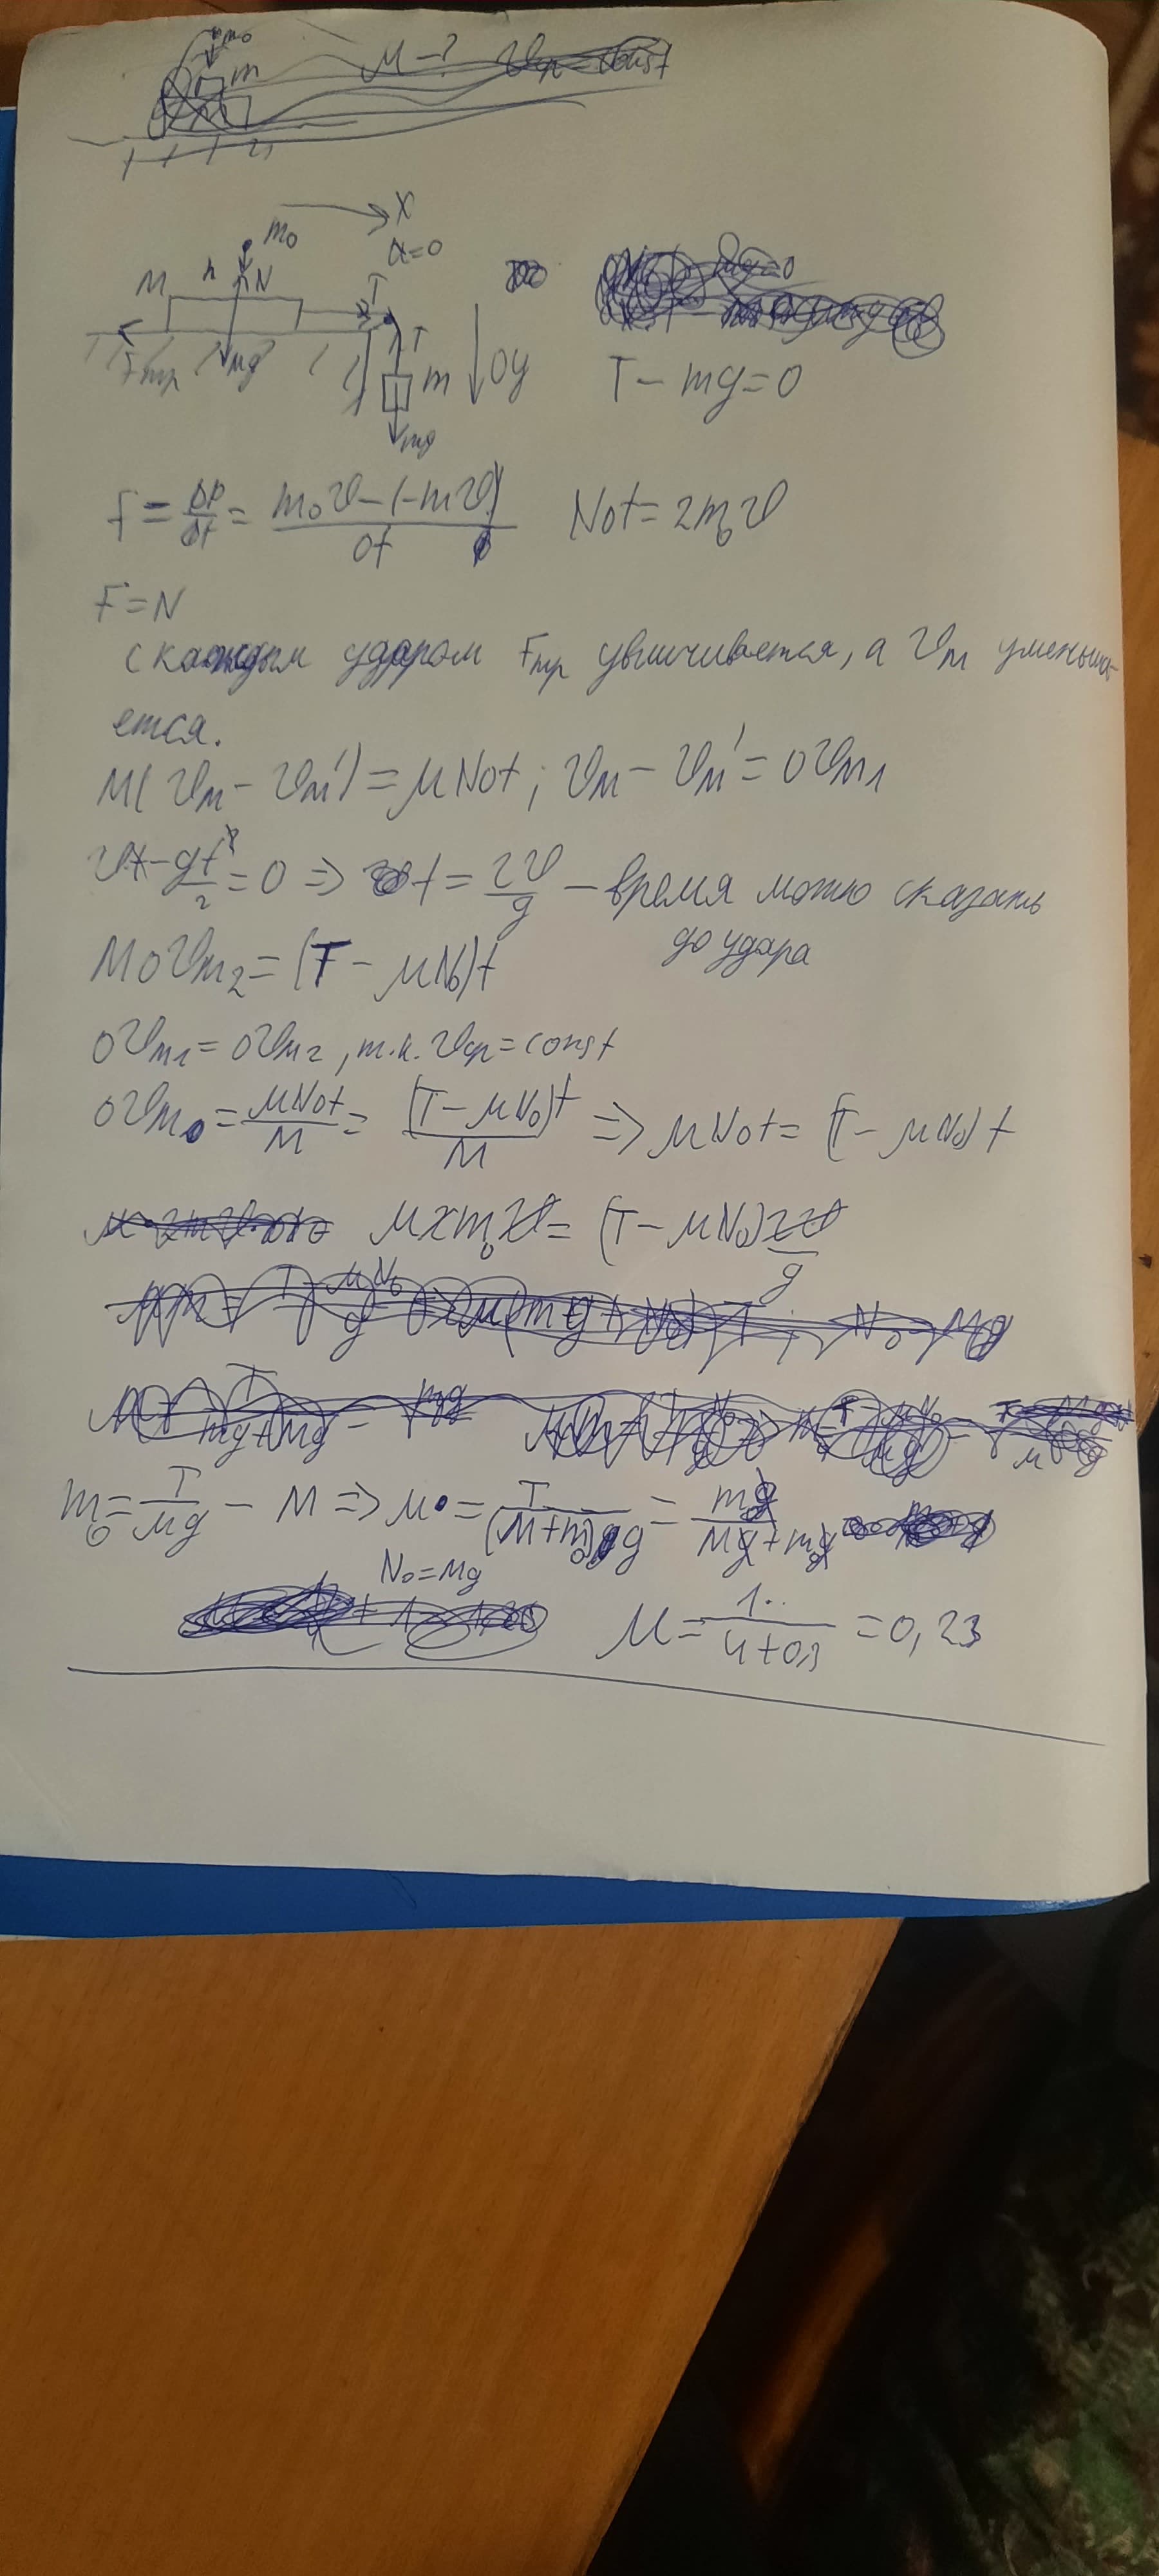 m₀
m
μ-? υср = const
X
m₀
a=0
M
h
N
T
Fтр
Mg
T
m
Oy
mg
T - mg = 0
F = Δp/Δt = (m₀υ-(-mυ))/Δt NΔt = 2m₀υ
F = N
с каждым ударом Fтр увеличивается, а υм уменьша-
ется.
M(υм - υм') = μNΔt; υм - υм' = Δυм₁
υt - gt²/2 = 0 => t = 2υ/g - время можно сказать
до удара
MΔυм₂ = (T - μN₀)t
Δυм₁ = Δυм₂, т.к. υср = const
Δυм₀ = μNΔt/M = (T - μN₀)t/M => μNΔt = (T - μN₀)t
μ2m₀υ = (T - μN₀)2υ/g
m₀ = T/μg - M => μ = T/((M+m₀)g) = mg/(Mg+m₀g)
N₀ = Mg
μ = 1/(4+0,3) = 0,23